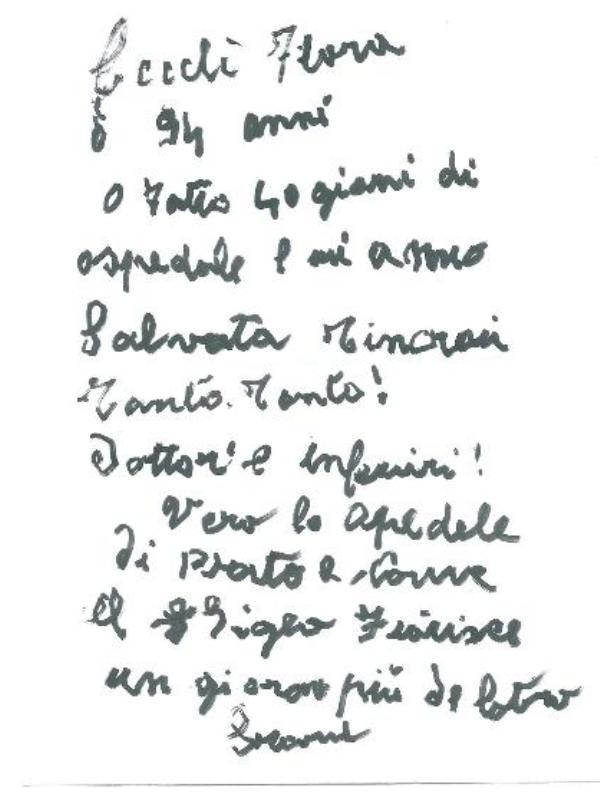 Cecchi Flora
ò 94 anni
o fatto 40 giorni di
ospedale e mi anno
Salvata
Tanto. Tanto!
Dottori e infermieri!
Vero lo
di Prato e come
il Giglio Fiorisce
un giorno più de latro